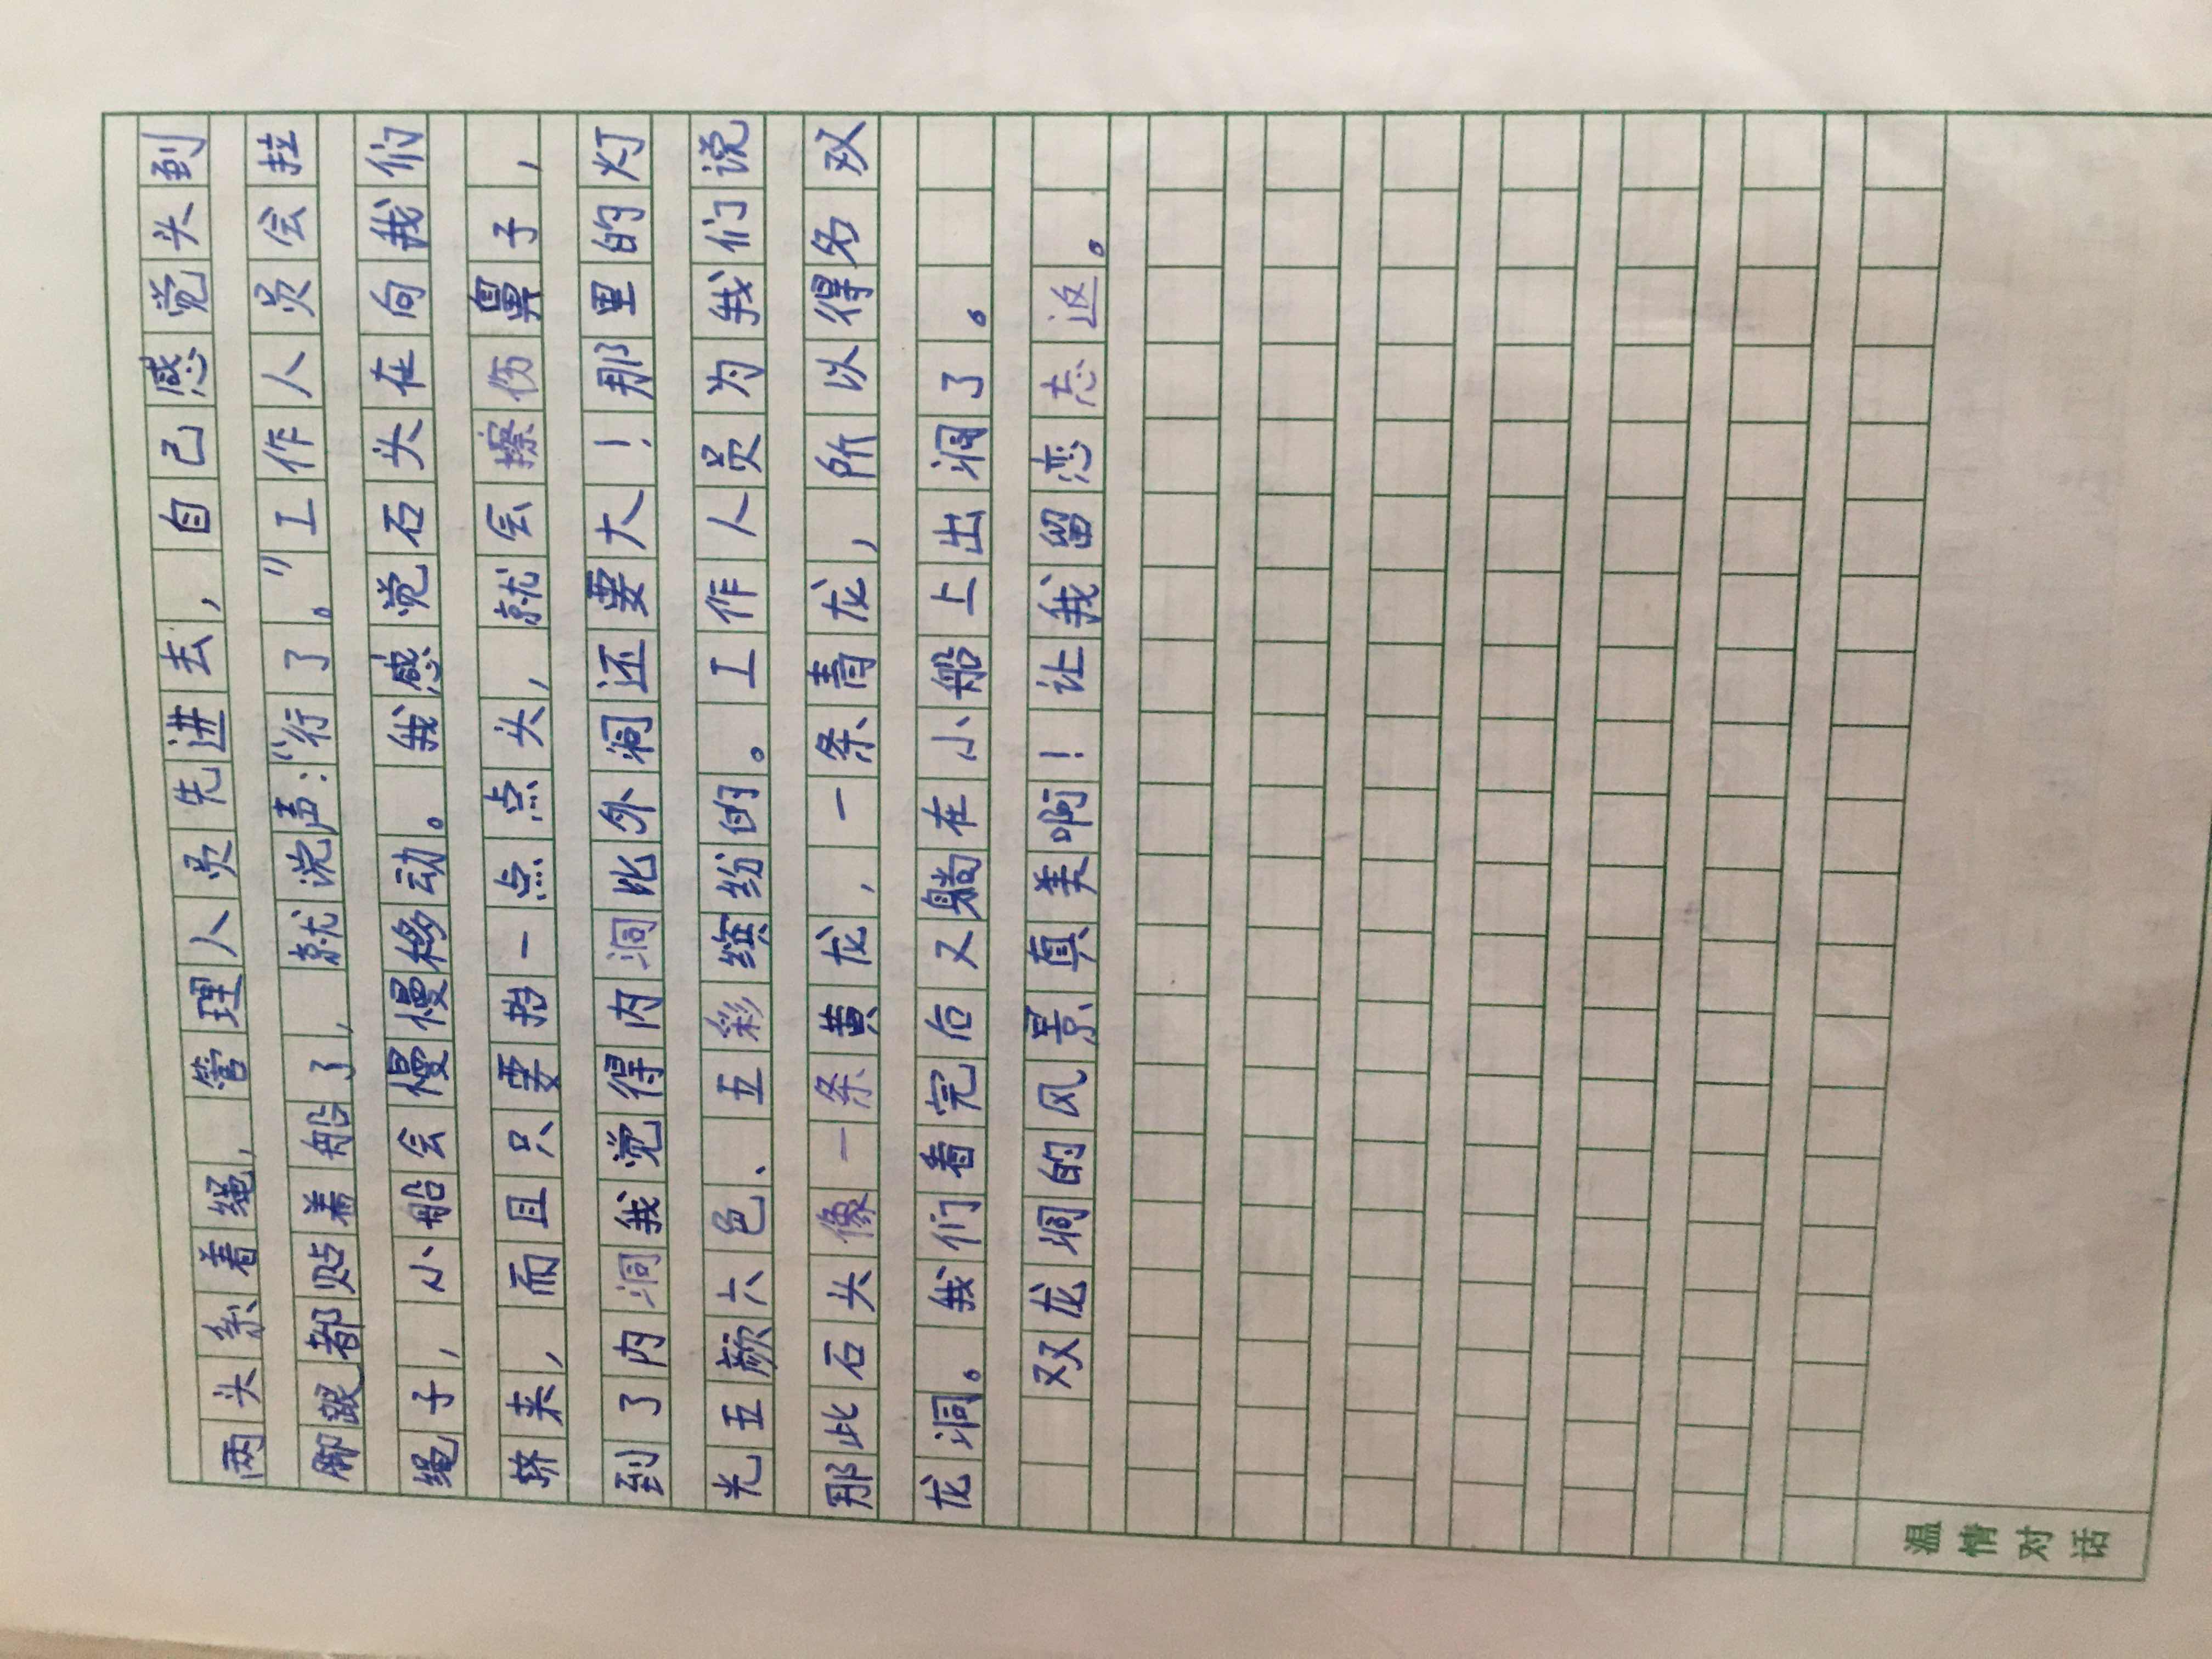 两头系着绳，管理人员先进去，自己感觉头到
脚跟都贴着船了，就说声：“行了。”工作人员会拉
绳子，小船会慢慢移动。我感觉石头在向我们
挤来，而且只要抬一点点头，就会擦伤鼻子，
到了内洞我觉得内洞比外洞还要大！那里的灯
光五颜六色、五彩缤纷的。工作人员为我们说
那此石头像一条黄龙，一条青龙，所以得名双
龙洞。我们看完后又躺在小船上出洞了。
双龙洞的风景真美啊！让我留恋忘返。
温情对话